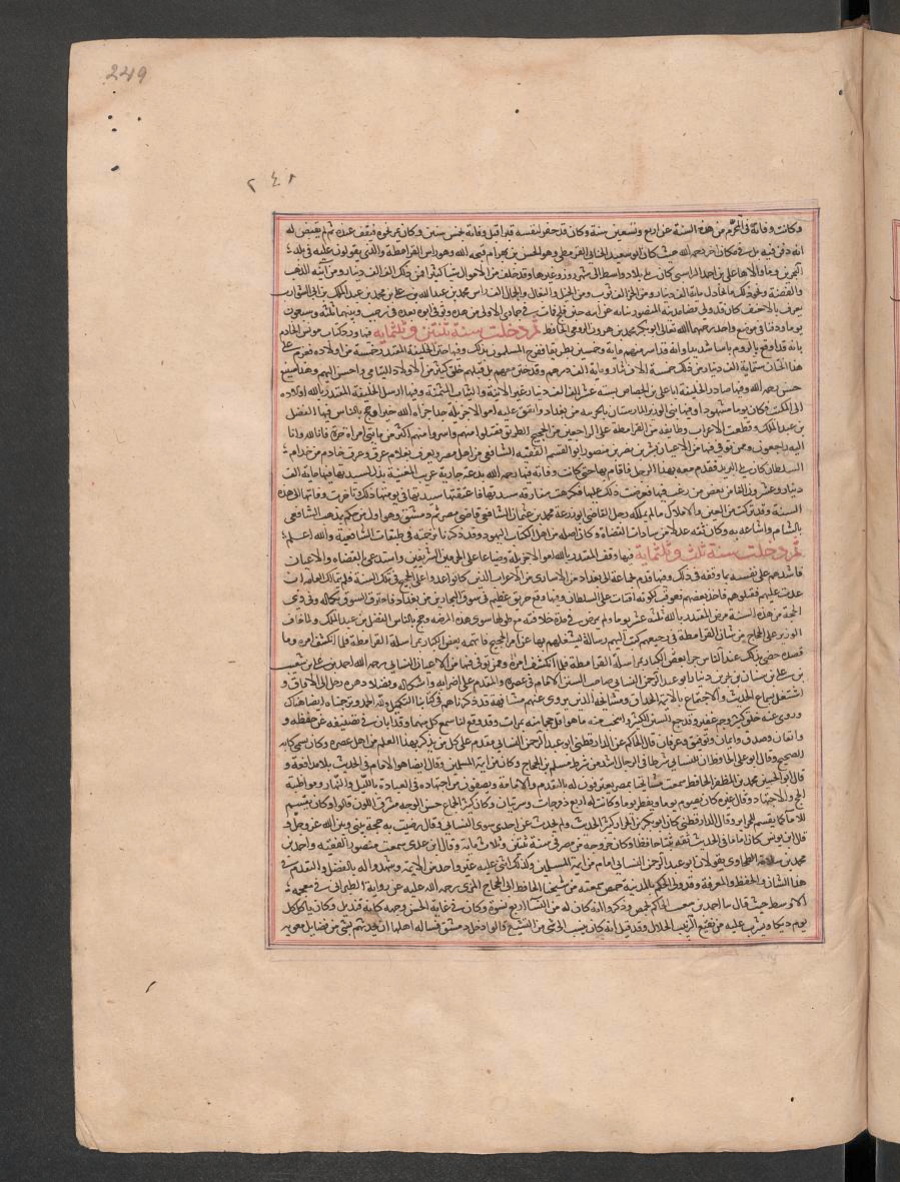 249
٢٤٨
وكانت وفاته في المحرم من هذه السنة عن اربع وتسعين سنة وكان قد حفر لنفسه قبرا قبل وفاته بخمس سنين وكان يمر نحوه فيقف عنده ثم لم يقض له
انه دفن فيه بل في مكان اخر رحمه الله حيث كان ابو سعيد الجنابي القرمطي وهو الحسن بن بهرام قبحه الله وهو راس القرامطة والذي يعولون عليه في بلاد
البحرين وما والاها علي بن احمد الراسبي كان يلي بلاد واسط الى شهرزور وغيرها وقد خلف من الاموال شيا كثيرا فمن ذلك الف الف دينار ومن آنية الذهب
والفضة ونحو ذلك ما يعادل ماية الف دينار ومن الخز الف ثوب ومن الخيل والبغال والجمال الف راس محمد بن عبد الله بن علي بن محمد بن عبد الملك بن ابي الشوارب
يعرف بالاحنف كان قد ولي قضا مدينة المنصور نيابة عن ابيه حتى فلج فمات في جمادى الاولى من هذه وتوفي ابوه بعده في رجب وبينهما ثلثة وسبعون
يوما ودفنا في موضع واحد رحمهما الله تعالى ابو بكر محمد بن هرون البردعي الحافظ ثم دخلت سنة ثنتين وثلثماية فيها ورد كتاب مونس الخادم
بانه قد اوقع بالروم باسا شديدا وانه قد اسر منهم ماية وخمسين بطريقا ففرح المسلمون بذلك وفيها ختن الخليفة المقتدر خمسة من اولاده فغرم على
هذا الختان ستماية الف دينار من ذلك خمسة الاف نثار وماية الف درهم وقد ختن معهم بل قبلهم خلق كثير من الاولاد اليتامى واحسن اليهم وهذا صنيع
حسن رحمه الله وفيها صادر الخليفة ابا علي بن الجصاص بستة عشر الف الف دينار غير الانية والثياب الثمينة وفيها ارسل الخليفة المقتدر بالله اولاده
الى المكتب فكان يوما مشهودا وفيها بنى الوزير المارستان بالحربية من بغداد وانفق عليه اموالا جزيلة جدا جزاه الله خيرا وحج بالناس فيها الفضل
بن عبد الملك وقطعت الاعراب وطايفة من القرامطة على الراجعين من الحجيج الطريق فقتلوا منهم واسروا منهم اكثر من مايتي امراة حرة فانا لله وانا
اليه راجعون وممن توفي فيها من الاعيان بشر بن نصر بن منصور ابو القسم الفقيه الشافعي من اهل مصر ويعرف بغلام عرق وعرق خادم من خدام
السلطان كان يلي البريد فقدم معه بهذا الرجل فاقام بها حتى كانت وفاته فيها رحمه الله بدعة جارية عريب المغنية بذل لسيدتها فيها ماية الف
دينار وعشرون الفا من بعض من رغب فيها فعرضت ذلك عليها فكرهت مفارقة سيدتها فاعتقتها سيدتها في يومها ذلك تاخرت وفاتها الى هذه
السنة وقد تركت من العين والاملاك ما لم يملكه رجل القاضي ابو زرعة محمد بن عثمان الشافعي قاضي مصر ثم دمشق وهو اول من حكم بمذهب الشافعي
بالشام واشاعه به وكان ثقة عدلا من سادات القضاة وكان اصله من اهل الكتاب اليهود وقد ذكرنا ترجمته في طبقات الشافعية والله اعلم
ثم دخلت سنة ثلث وثلثماية فيها وقف المقتدر بالله اموالا جزيلة وضياعا على الحرمين الشريفين واستدعى بالقضاة والاعيان
فاشهدهم على نفسه بما وقفه في ذلك وفيها قدم بجماعة الى بغداد من الاسارى من الاعراب الذين كانوا عدوا على الحجيج في تلك السنة فلم يتمالك العامة ان
عدت عليهم فقتلوهم فاخذ بعضهم فعوقب لكونه افتات على السلطان وفيها وقع حريق عظيم في سوق النجارين من بغداد فاحترق السوق بكماله وفي ذي
الحجة من هذه السنة مرض المقتدر بالله ثلثة عشر يوما ولم يمرض في مدة خلافته مع طولها سوى هذه المرضة وحج بالناس الفضل بن عبد الملك ولما خاف
الوزير على الحجاج من شان القرامطة في رجوعهم كتب اليهم رسالة ليشغلهم بها عن امر الحجيج فاتهمه بعض الكبار بمراسلة القرامطة فلما انكشف امره وما
قصده حظي بذلك عند الناس جدا وممن توفي فيها من الاعيان النسائي رحمه الله احمد بن علي بن شعيب
بن علي بن سنان بن بحر بن دينار ابو عبد الرحمن النسائي صاحب السنن الامام في عصره والمقدم على اضرابه واشكاله وفضلاء دهره رحل الى الافاق و
اشتغل بسماع الحديث والاجتماع بالايمة الحذاق ومشايخه الذين يروي عنهم مشافهة قد ذكرناهم في كتابنا التكميل ولله الحمد وترجمناه ايضا هناك
وروى عنه خلق كثير وجم غفير وقد جمع السنن الكبير وانتخب منه ما هو اقل حجما منه بمرات وقد وقع لنا سماع كل منهما وقد ابان في تصنيفه عن حفظه و
واتقان وصدق وايمان وتوفيق وعرفان قال الحاكم عن الدارقطني ابو عبد الرحمن النسائي مقدم على كل من يذكر بهذا العلم من اهل عصره وكان يسمي كتابه
الصحيح وقال ابو علي الحافظ ان للنسائي شرطا في الرجال اشد من شرط مسلم بن الحجاج وكان من ايمة المسلمين وقال ايضا هو الامام في الحديث بلا مدافعة و
قال ابو الحسين محمد بن المظفر الحافظ سمعت مشايخنا بمصر يعترفون له بالتقدم والامامة ويصفون من اجتهاده في العبادة بالليل والنهار ومواظبته
الحج والاجتهاد وقال غيره كان يصوم يوما ويفطر يوما وكانت له اربع زوجات وسريتان وكان كثير الجماع حسن الوجه مشرق اللون قالوا وكان يقسم
للاماء كما يقسم للحراير وقال الدارقطني كان ابو بكر بن الحداد كثير الحديث ولم يحدث عن احد سوى النسائي وقال رضيت به حجة بيني وبين الله عز وجل و
قال ابن يونس كان اماما في الحديث ثقة ثبتا حافظا وكان خروجه من مصر في سنة ثنتين وثلاث ماية وقال ابن عدي سمعت منصور الفقيه واحمد بن
محمد بن سلامة الطحاوي يقولان ابو عبد الرحمن النسائي امام من ايمة المسلمين وكذلك اثنى عليه غير واحد من الايمة وشهدوا له بالفضل والتقدم في
هذا الشان والحفظ والمعرفة وقد ولي الحكم بالمدينة حمص سمعته من شيخنا الحافظ ابي الحجاج المزي رحمه الله عليه عن رواية الطبراني في معجمه
الاوسط حيث قال ثنا احمد بن شعيب الحاكم بحمص وذكروا انه كان له من النسا اربع نسوة وكان في غاية الحسن وجهه كانه قنديل وكان ياكل كل
يوم ديكا ويشرب عليه من نقيع الزبيب الحلال وقد قيل انه كان ينسب الى شي من التشيع قالوا ودخل دمشق فساله اهلها ان يحدثهم بشي من فضايل معوية